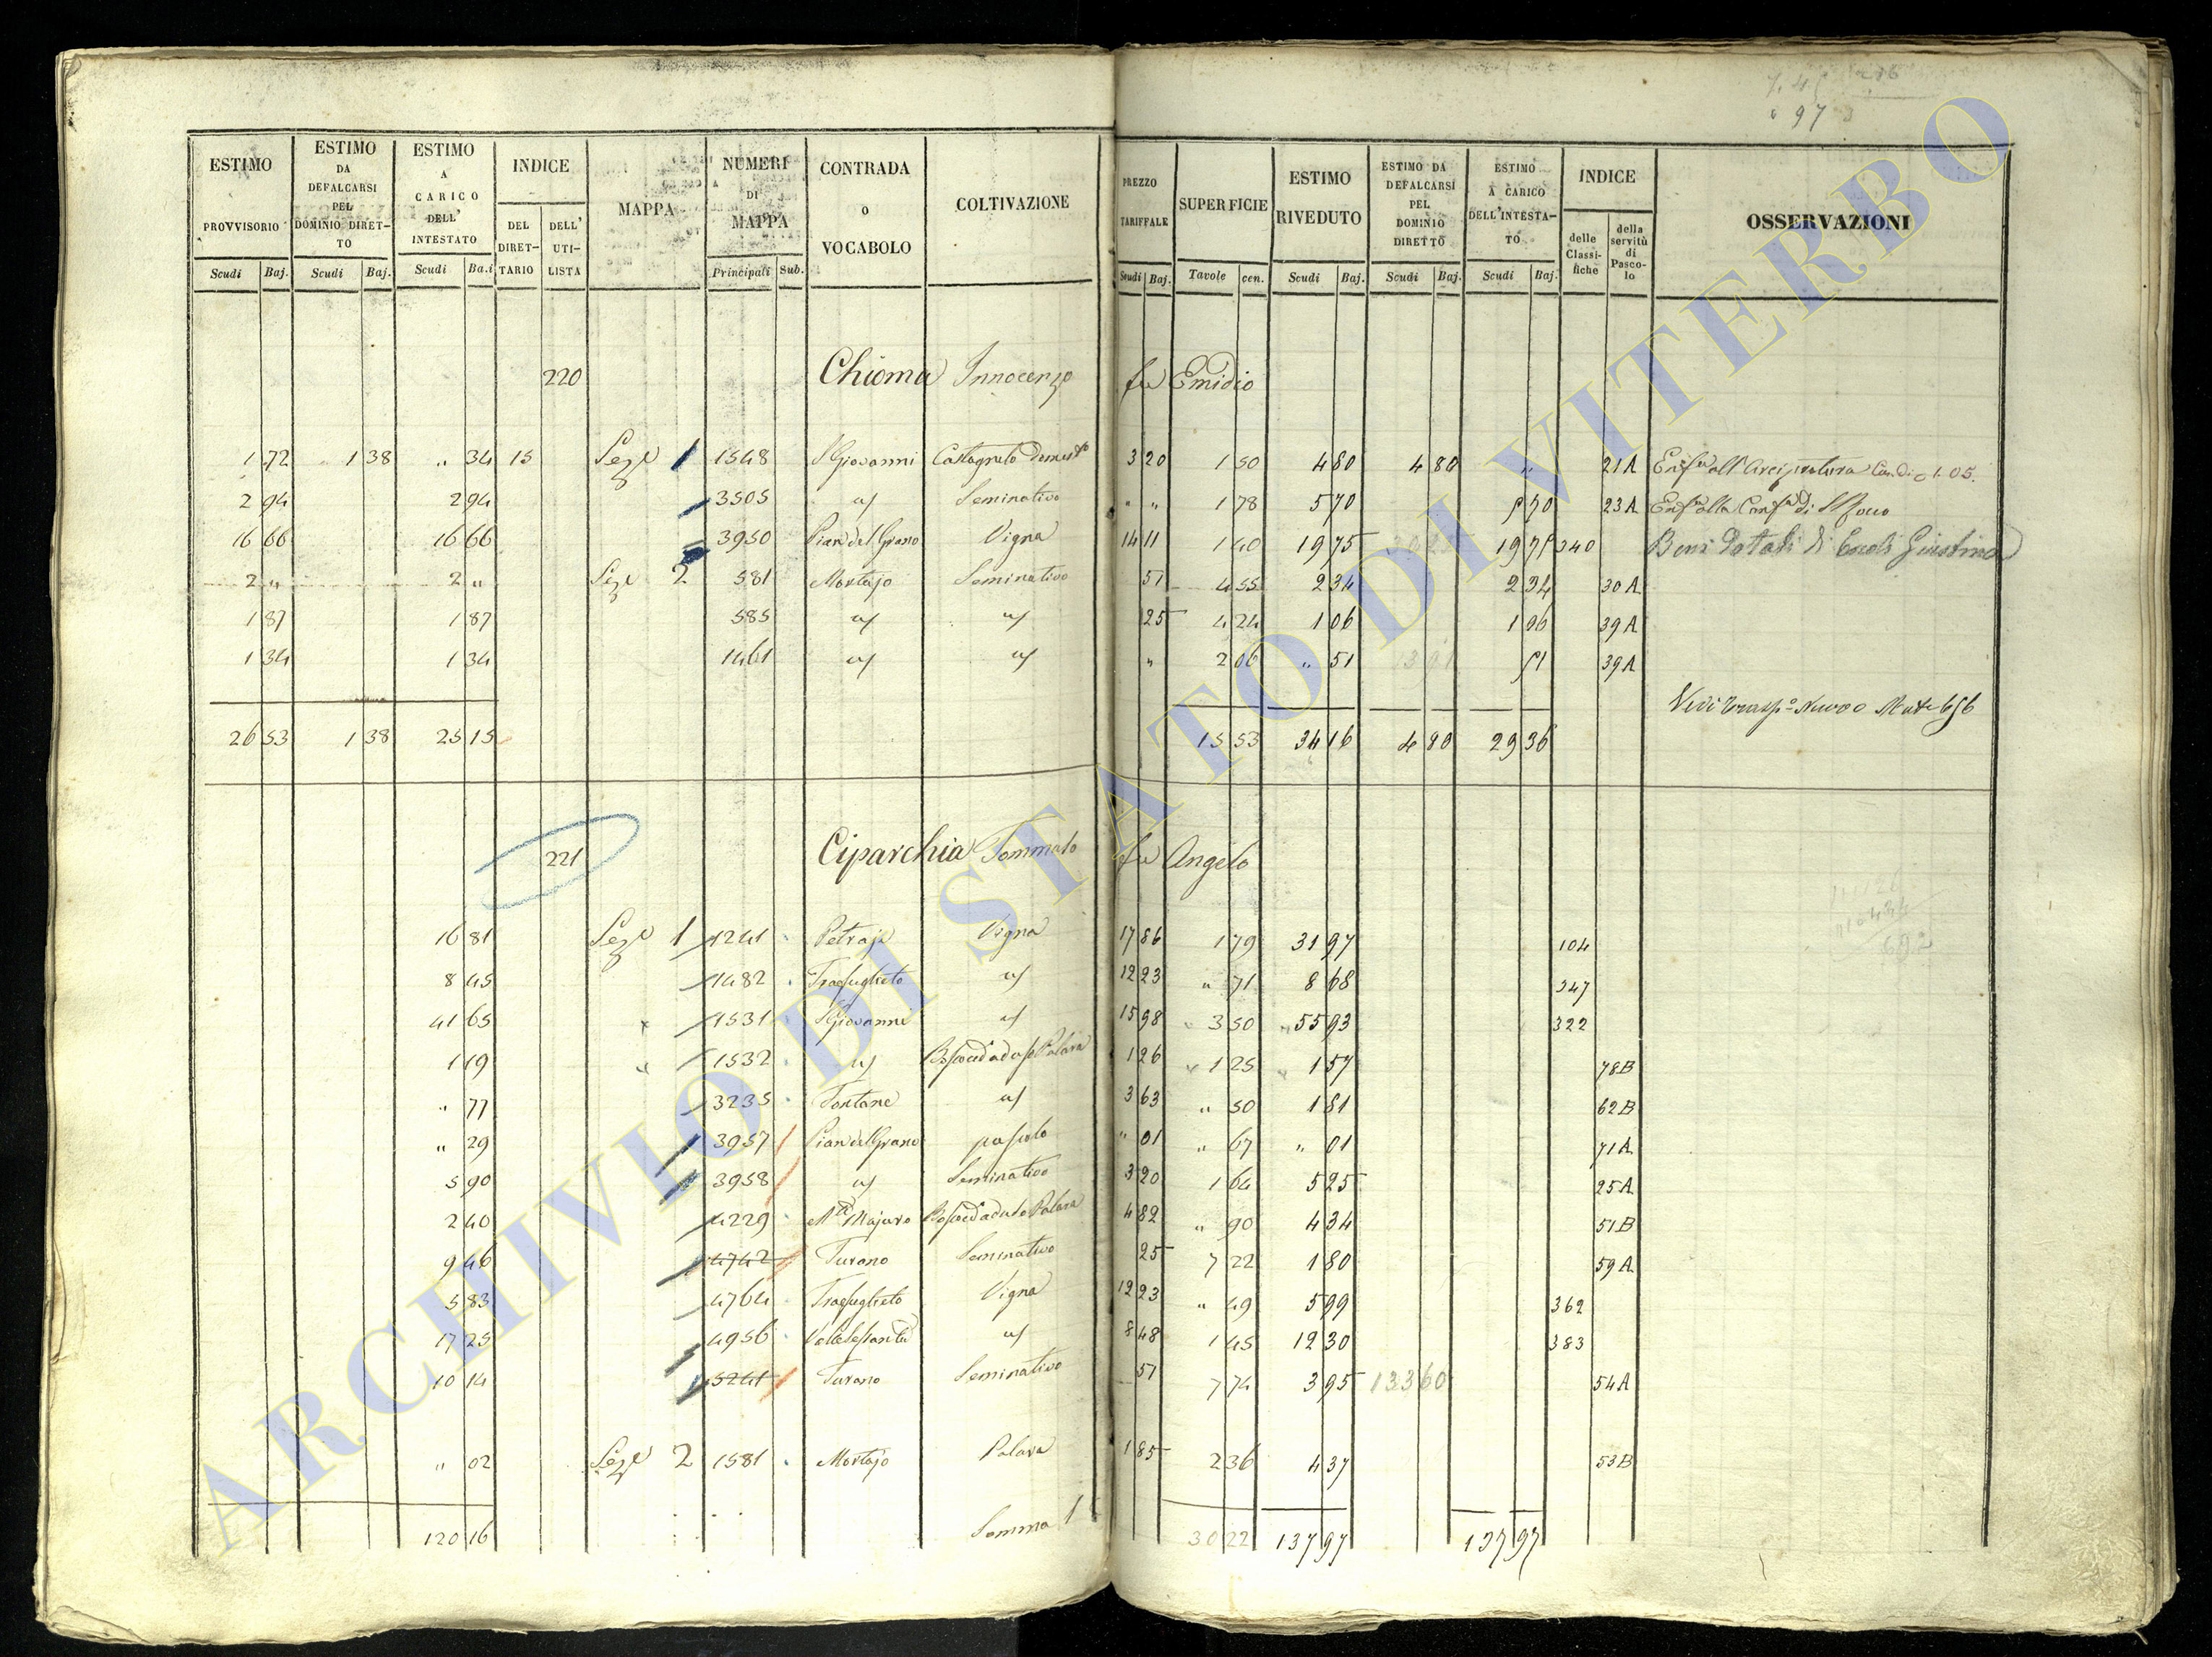 276
97 3
ESTIMO PROVVISORIO Scudi Baj. ESTIMO DA DEFALCARSI PEL DOMINIO DIRETTO Scudi Baj. ESTIMO A CARICO DELL' INTESTATO Scudi Ba.i INDICE DEL DIRETTARIO DELL' UTILISTA MAPPA NUMERI DI MAPPA Principali Sub. CONTRADA O VOCABOLO COLTIVAZIONE PREZZO TARIFFALE Scudi Baj. SUPERFICIE Tavole cen. ESTIMO RIVEDUTO Scudi Baj. ESTIMO DA DEFALCARSI PEL DOMINIO DIRETTO Scudi Baj. ESTIMO A CARICO DELL'INTESTATO Scudi Baj. INDICE delle Classifiche della servitù di Pascolo OSSERVAZIONI
220 Chioma Innocenzo fu Emidio
1 72 „ 1 38 „ 34 15 Seze 1 1548 S Giovanni Castagneto Domesto 3 20 1 50 4 80 4 80 „ 21A Enfa all'Arcipretura Can. di 1.05.
2 94 2 94 3505 " Seminativo " " 1 78 5 70 5 70 23A Enfa alla Confa di S Rocco
16 66 16 66 3950 Pian del Grano Vigna 14 11 1 40 19 75 19 75 340 Beni Dotali di Giustina
2 „ 2 „ Seze 2 581 Mortajo Seminativo 51 4 55 2 34 2 34 30A
1 87 1 87 585 " " 25 4 24 1 06 1 06 39A
1 34 1 34 1461 " " " 2 06 „ 51 51 39A
Vedi Trasp.o Nuovo Mate 656
26 53 1 38 25 15 15 53 34 16 4 80 29 36
221 Ciparchia Tommaso fu Angelo
16 81 Seze 1 1241 Petraje Vigna 17 86 1 79 31 97 104
8 45 1482 Trosuglieto " 12 23 „ 71 8 68 347
41 65 1531 S Giovanni " 15 98 3 50 55 93 322
1 19 1532 " Bosco ced. ad uso Palara 1 26 1 25 1 57 78B
„ 77 3235 Fontane " 3 63 „ 50 1 81 62B
„ 29 3957 Pian del Grano pascolo „ 01 „ 67 „ 01 71A
5 90 3958 " Seminativo 3 20 1 64 5 25 25A
2 40 4229 Mte Majuro Bosco ced. ad uso Palara 4 82 „ 90 4 34 51B
9 46 4742 Turano Seminativo 25 7 22 1 80 59A
5 83 4764 Trosuglieto Vigna 12 23 „ 49 5 99 362
17 25 4956 " 8 48 1 45 12 30 383
10 14 5241 Turano Seminativo 51 7 74 3 95 133 60 54A
„ 02 Seze 2 1581 Mortajo Palara 1 85 2 36 4 37 53B
120 16 Somma 30 22 137 97 137 97
ARCHIVIO DI STATO DI VITERBO